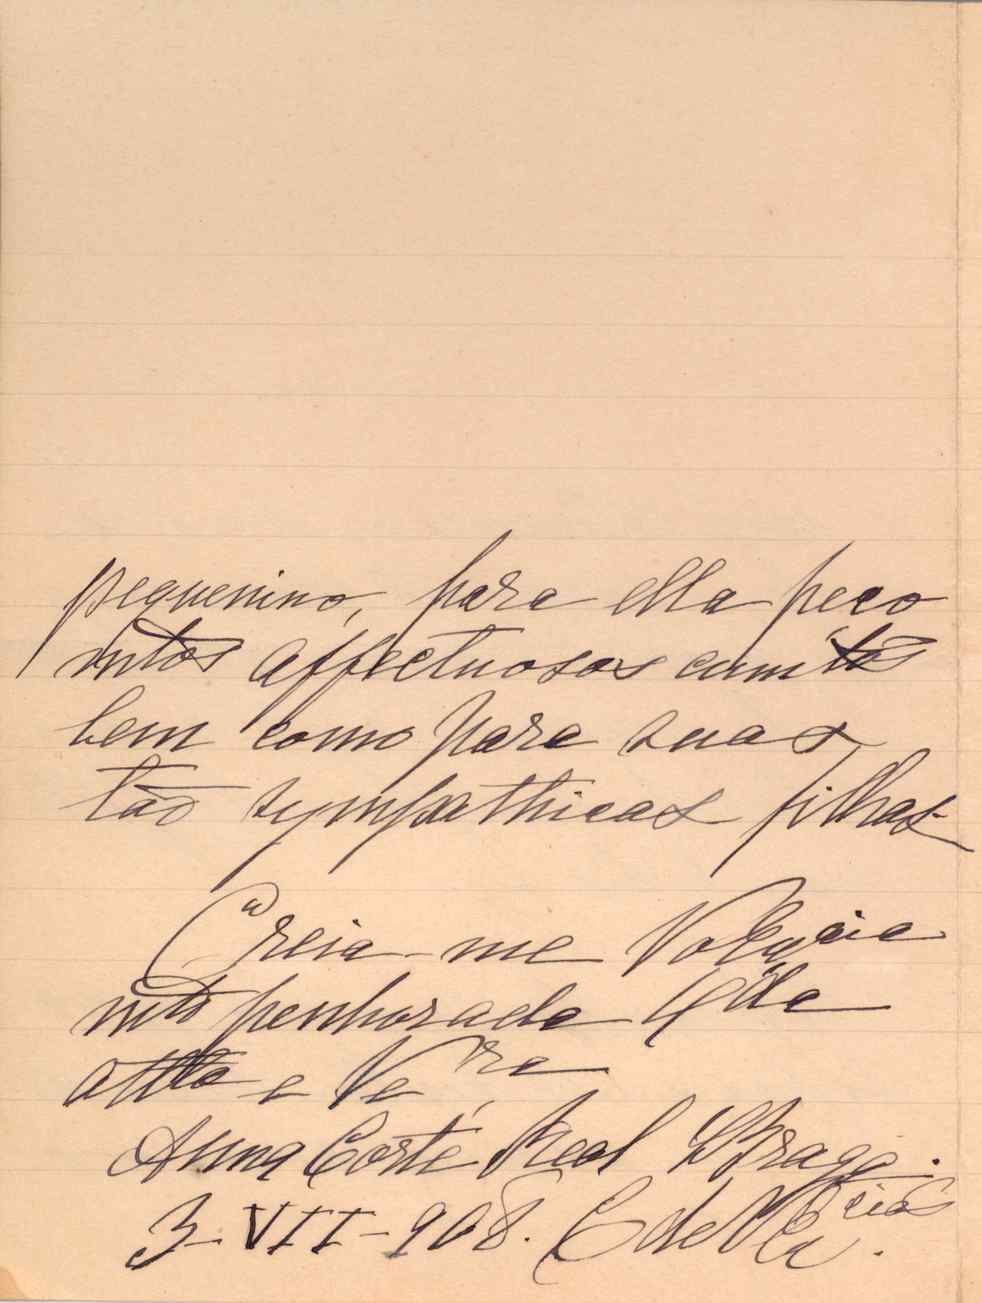 pequenino, para ella peço
mtos affectuosos cumtos
bem como para suas
tão sympathicas filhas.
Creia-me
mto penhorada
atta e Ven ra
Anna Corte Real Braga.
3-VII-908. C de V